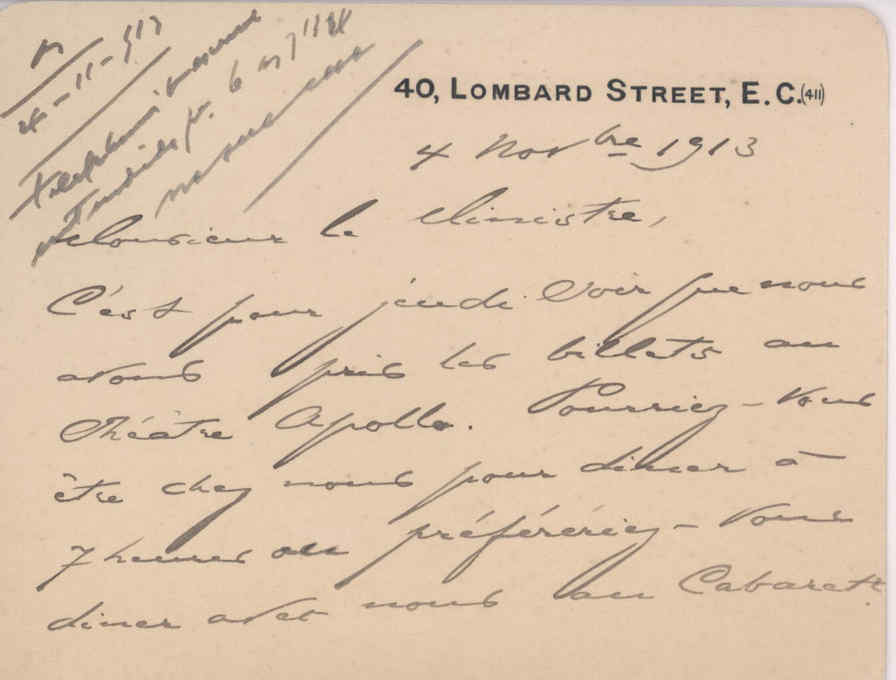 R
4-11-913
6 in 7bre
40, LOMBARD STREET, E.C.(411)
4 Novbre 1913
Monsieur le Ministre,
C'est pour jeudi soir que nous
avons pris les billets au
Théâtre Apollo. Pourriez-vous
être chez nous pour diner à
7 heures ou préféreriez-vous
diner avec nous au Cabaret?